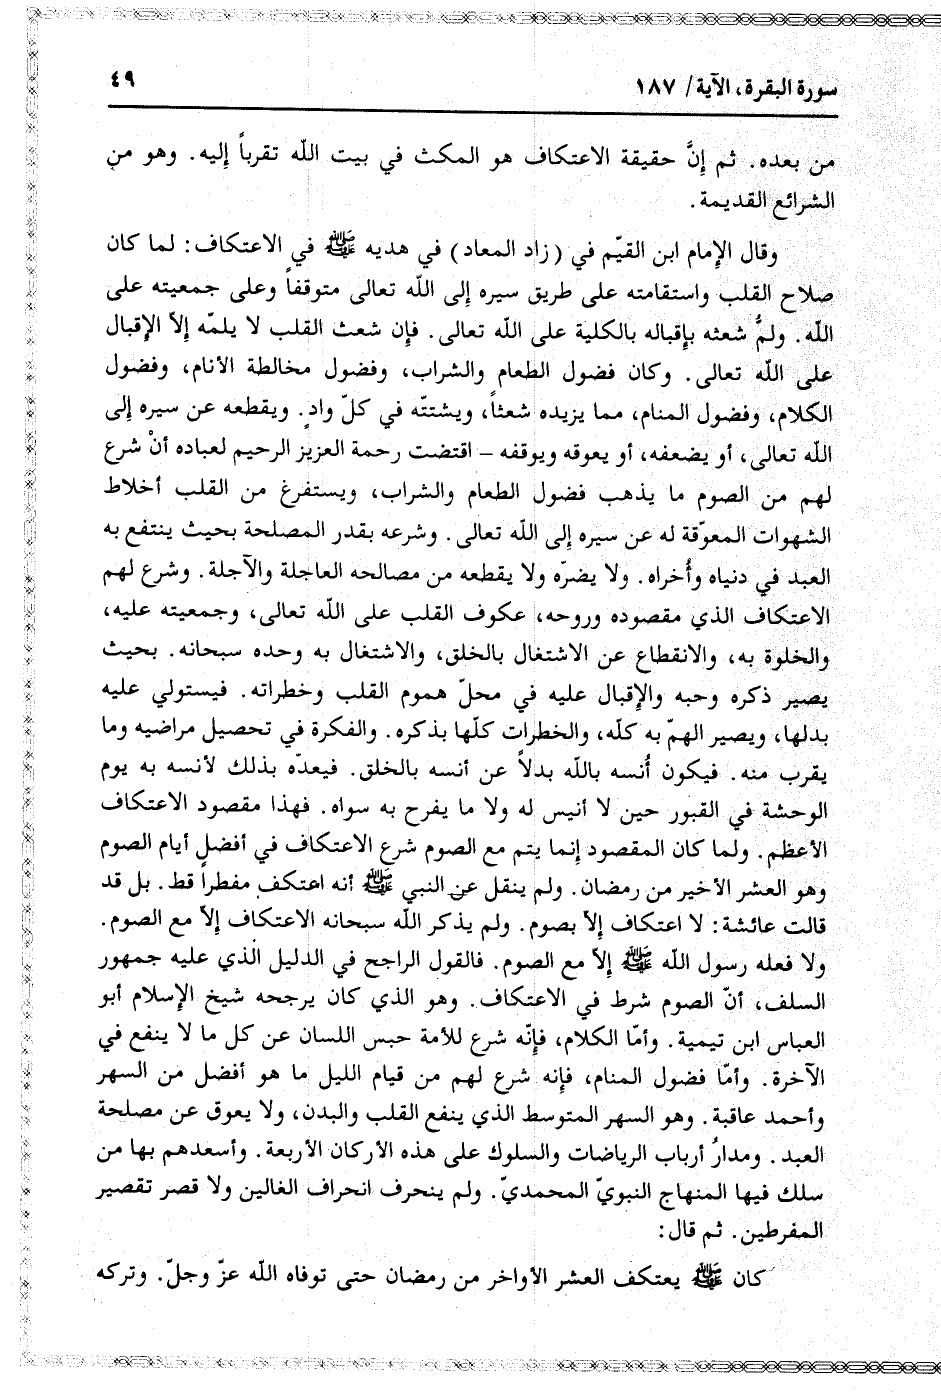 سورة البقرة، الآية/ ١٨٧
٤٩
من بعده. ثم إنَّ حقيقة الاعتكاف هو المكث في بيت اللّه تقرباً إليه. وهو من
الشرائع القديمة.
وقال الإمام ابن القيّم في (زاد المعاد) في هديه ﷺ في الاعتكاف: لما كان
صلاح القلب واستقامته على طريق سيره إلى اللّه تعالى متوقفاً وعلى جمعيته على
اللّه. ولمُّ شعثه بإقباله بالكلية على اللّه تعالى. فإن شعث القلب لا يلمّه إلاّ الإقبال
على اللّه تعالى. وكان فضول الطعام والشراب، وفضول مخالطة الأنام، وفضول
الكلام، وفضول المنام، مما يزيده شعثاً، ويشتته في كلّ وادٍ. ويقطعه عن سيره إلى
اللّه تعالى، أو يضعفه، أو يعوقه ويوقفه – اقتضت رحمة العزيز الرحيم لعباده أنْ شرع
لهم من الصوم ما يذهب فضول الطعام والشراب، ويستفرغ من القلب أخلاط
الشهوات المعوّقة له عن سيره إلى اللّه تعالى. وشرعه بقدر المصلحة بحيث ينتفع به
العبد في دنياه وأُخراه. ولا يضرّه ولا يقطعه من مصالحه العاجلة والآجلة. وشرع لهم
الاعتكاف الذي مقصوده وروحه، عكوف القلب على اللّه تعالى، وجمعيته عليه،
والخلوة به، والانقطاع عن الاشتغال بالخلق، والاشتغال به وحده سبحانه. بحيث
يصير ذكره وحبه والإقبال عليه في محلّ هموم القلب وخطراته. فيستولي عليه
بدلها، ويصير الهمّ به كلّه، والخطرات كلّها بذكره. والفكرة في تحصيل مراضيه وما
يقرب منه. فيكون أُنسه باللّه بدلاً عن أنسه بالخلق. فيعدّه بذلك لأنسه به يوم
الوحشة في القبور حين لا أنيس له ولا ما يفرح به سواه. فهذا مقصود الاعتكاف
الأعظم. ولما كان المقصود إنما يتم مع الصوم شرع الاعتكاف في أفضل أيام الصوم
وهو العشر الأخير من رمضان. ولم ينقل عن النبي ﷺ أنه اعتكف مفطراً قط. بل قد
قالت عائشة: لا اعتكاف إلاّ بصوم. ولم يذكر اللّه سبحانه الاعتكاف إلاّ مع الصوم.
ولا فعله رسول اللّه ﷺ إلاّ مع الصوم. فالقول الراجح في الدليل الذي عليه جمهور
السلف، أنّ الصوم شرط في الاعتكاف. وهو الذي كان يرجحه شيخ الإسلام أبو
العباس ابن تيمية. وأمّا الكلام، فإنّه شرع للأمة حبس اللسان عن كل ما لا ينفع في
الآخرة. وأمّا فضول المنام، فإنه شرع لهم من قيام الليل ما هو أفضل من السهر
وأحمد عاقبة. وهو السهر المتوسط الذي ينفع القلب والبدن، ولا يعوق عن مصلحة
العبد. ومدارُ أرباب الرياضات والسلوك على هذه الأركان الأربعة. وأسعدهم بها من
سلك فيها المنهاج النبويّ المحمديّ. ولم ينحرف انحراف الغالين ولا قصر تقصير
المفرطين. ثم قال:
كان ﷺ يعتكف العشر الأواخر من رمضان حتى توفاه اللّه عزّ وجلّ. وتركه